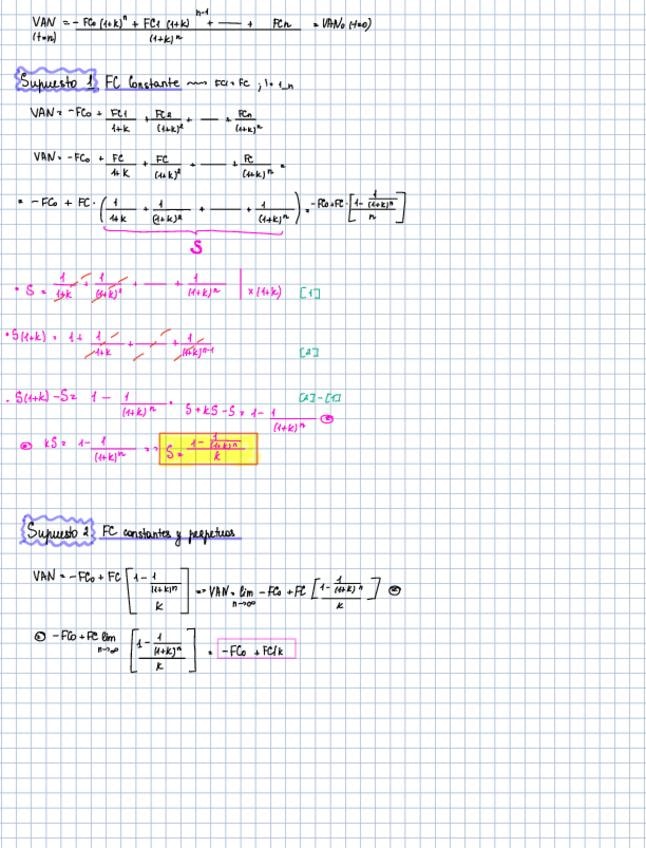 VAN (t=n) = -FC₀ (1+k)ⁿ + FC₁ (1+k)ⁿ⁻¹ + — + FCn / (1+k)ⁿ = VAN₀ (t=0)
Supuesto 1 FC Constante ~~> FCi = FC ; i=1_n
VAN = -FC₀ + FC₁/(1+k) + FC₂/(1+k)² + — + FCn/(1+k)ⁿ
VAN = -FC₀ + FC/(1+k) + FC/(1+k)² + — + FC/(1+k)ⁿ =
= -FC₀ + FC · (1/(1+k) + 1/(1+k)² + — + 1/(1+k)ⁿ) = -FC₀ + FC · [(1 - 1/(1+k)ⁿ)/n]
S
• S = 1/(1+k) + 1/(1+k)² + — + 1/(1+k)ⁿ | x (1+k) [1]
• S(1+k) = 1 + 1/(1+k) + — + 1/(1+k)ⁿ⁻¹ [2]
• S(1+k) - S = 1 - 1/(1+k)ⁿ = S + kS - S = 1 - 1/(1+k)ⁿ [2]-[1]
kS = 1 - 1/(1+k)ⁿ => S = (1 - 1/(1+k)ⁿ)/k
Supuesto 2 FC constantes y perpetuos
VAN = -FC₀ + FC [(1 - 1/(1+k)ⁿ)/k] => VAN = lim n→∞ -FC₀ + FC [(1 - 1/(1+k)ⁿ)/k]
-FC₀ + FC lim n→∞ [(1 - 1/(1+k)ⁿ)/k] = -FC₀ + FC/k